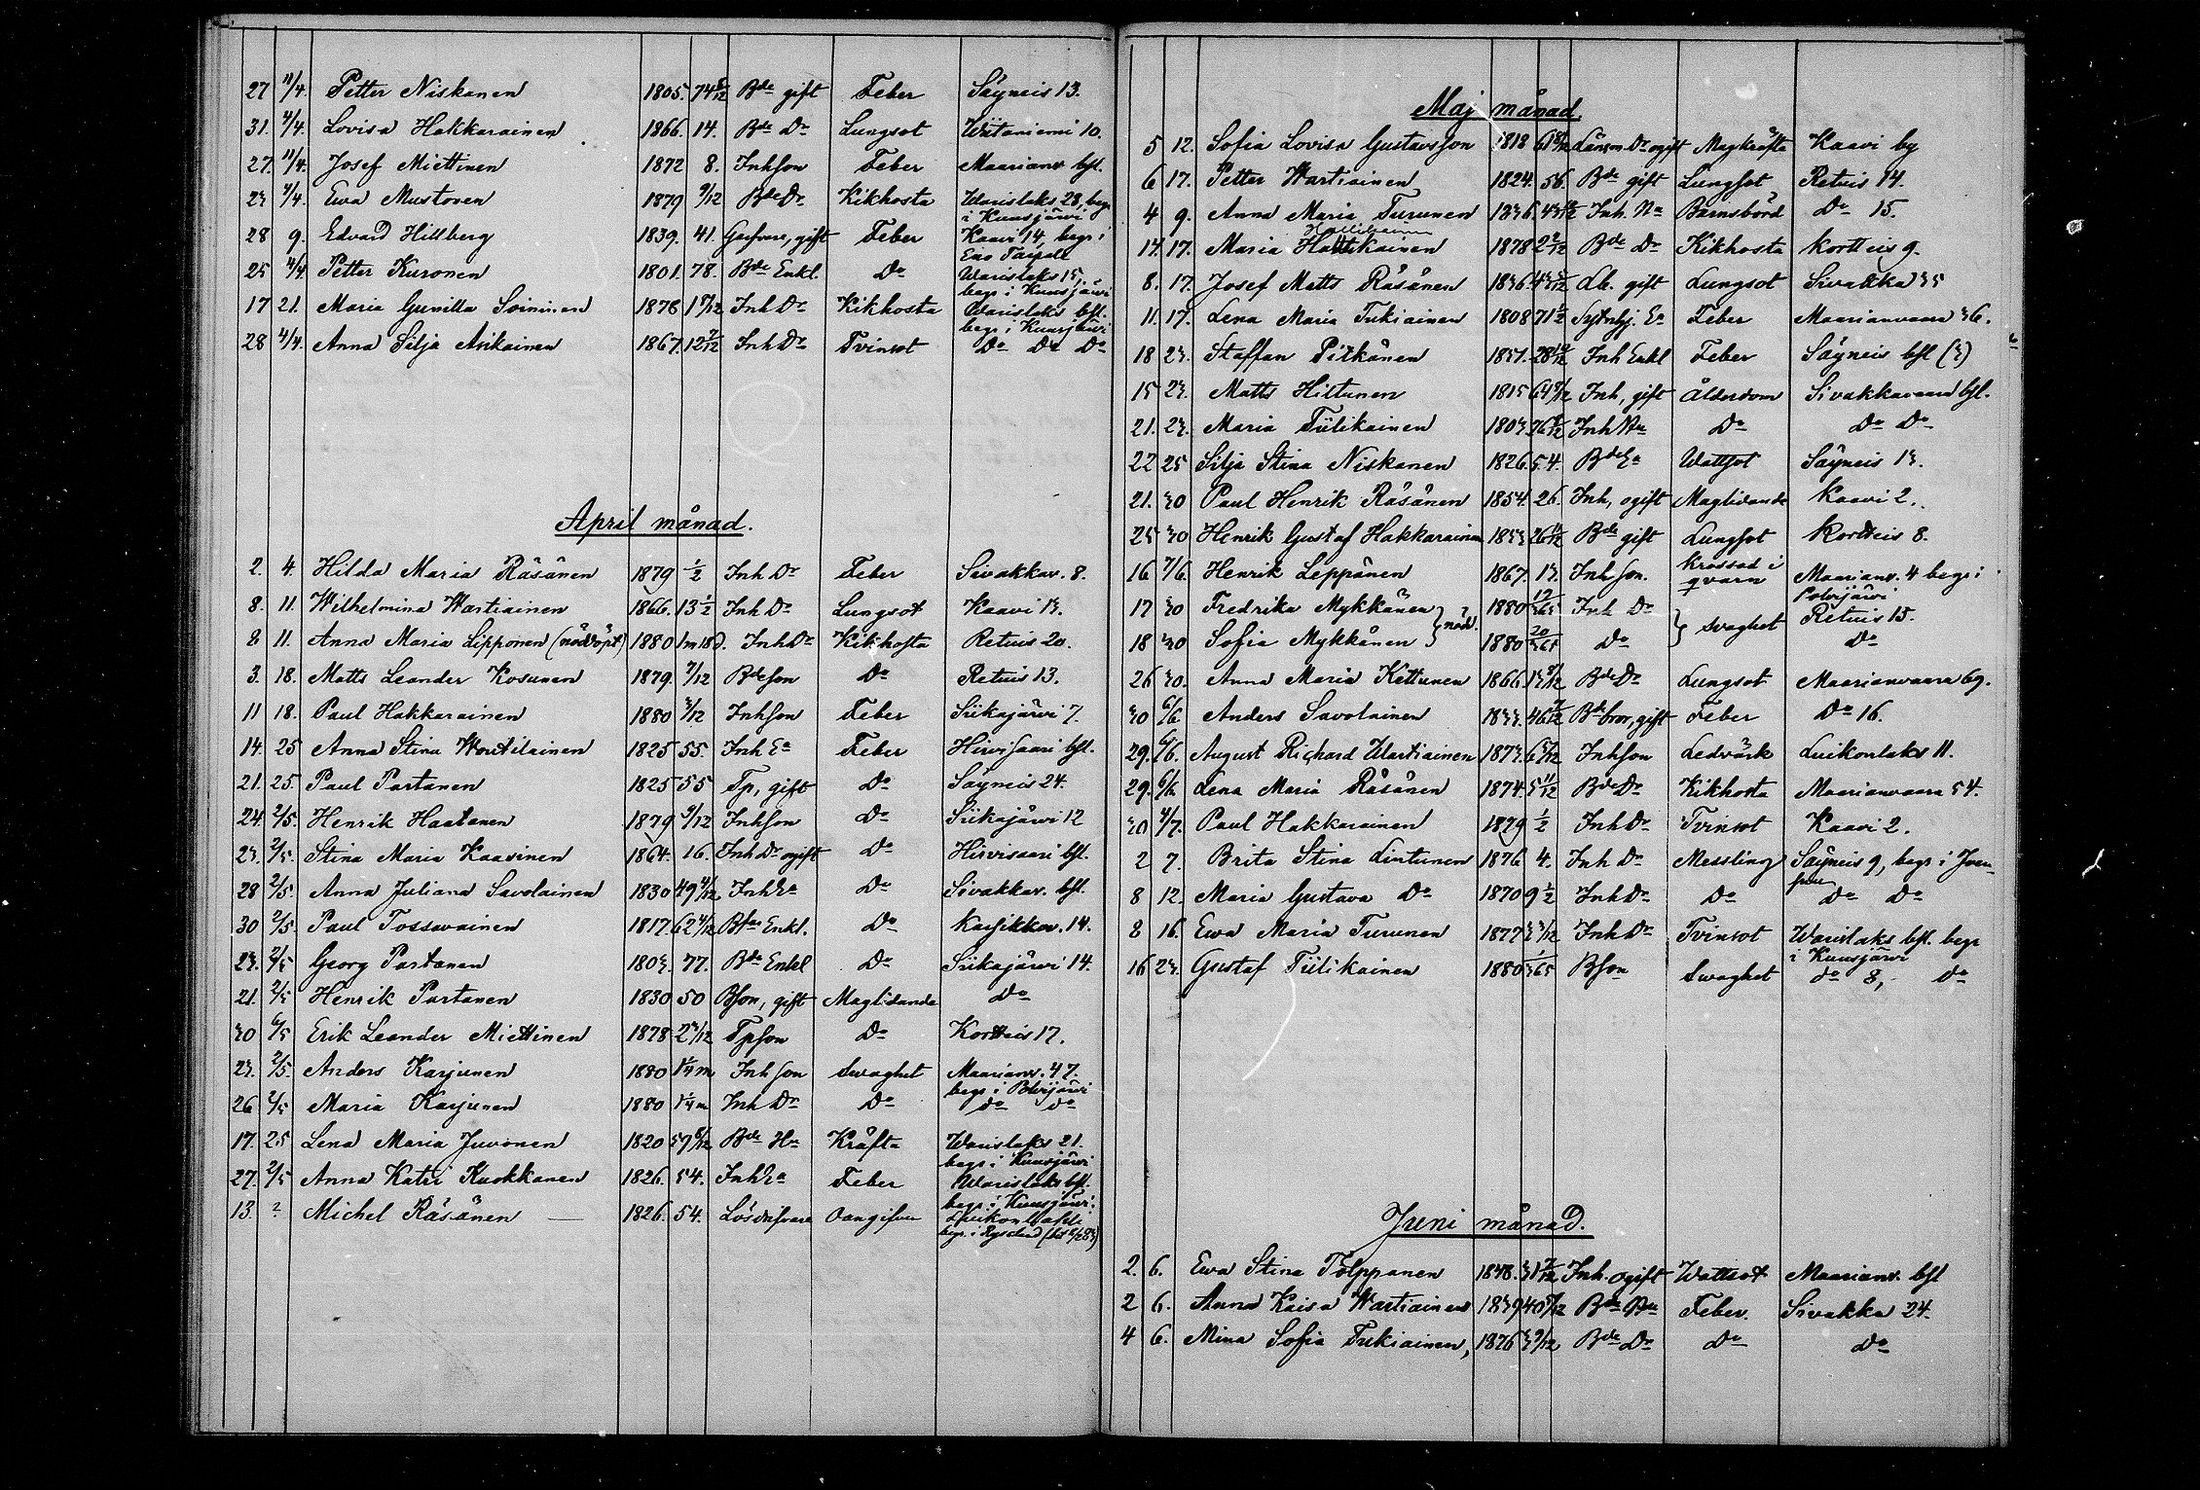 27 11/4. Petter Niskanen 1805. 74 8/12 Bde gift Feber Säyneis 13.
31. 4/4. Lovisa Hakkarainen 1866. 14. Bde Dr Lungsot Wiitaniemi 10.
27. 11/4. Josef Miettinen 1872 8. Inhson Feber Maarianv. bfl.
23 4/4. Ewa Mustonen 1879 9/12 Bde Dr Kikhosta Waristaks 28, begr. i Kuusjärvi
28 9. Edvard Hillberg 1839. 41. gift Feber Kaavi 14, begr. i Eno
25 4/4 Petter Kuronen 1801. 78. Bde Enkl. Do Waristaks 15, begr. i Kuusjärvi
17 21. Maria Gunilla Soininen 1878 1 Inh Dr Kikhosta Waristaks bfl. begr. i Kuusjärvi
28 4/4. Anna Silja Asikainen 1867. 12 7/12 Inh Dr Tvinsot Do Do Do
April månad.
2. 4. Hilda Maria Räsänen 1879 1/2 Inh Dr Feber Sivakkav. 8.
8. 11. Wilhelmina Wartiainen 1866. 13 1/2 Inh Dr Lungsot Kaavi 13.
8 11. Anna Maria Lipponen (nöddöpt) 1880 1 m 18 d. Inh Dr Kikhosta Retuis 20.
3. 18. Matts Leander Kosunen 1879 7/12 Bde son Do Retuis 13.
11 18. Paul Hakkarainen 1880 3/12 Inhson Feber Siikajärvi 7.
14. 25 Anna Stina Woutilainen 1825 55. Inh Ea Feber Hirvisaari bfl.
21. 25. Paul Partanen 1825 55 Tp, gift Do Säyneis 24.
24 2/5. Henrik Haatanen 1879 9/12 Inhson Do Siikajärvi 12
23. 2/5. Stina Maria Kaasinen 1864. 16. Inh Dr ogift Do Hirvisaari bfl.
28 2/5. Anna Juliana Savolainen 1830 49 4/12 Inh Ea Do Sivakkav. bfl.
30 2/5. Paul Tossavainen 1817. 62 4/12 Enkl. Do Karsikkov. 14.
23. 2/5 Georg Partanen 1803. 77. Bde Enkl Do Siikajärvi 14.
21. 2/5 Henrik Partanen 1830 50 Bson, gift Maglidande Do
30 6/5 Erik Leander Miettinen 1878 2 3/12 Tpson Do Kortteis 17.
23. 2/5. Anders Karjunen 1880 1 1/4 m Inhson Swaghet Maarianv. 47. begr. i Polvijärvi
26 2/5 Maria Karjunen 1880 1 1/4 m Inh Dr Do do do
17. 25 Lena Maria Juvonen 1820 59 8/12 Bde Ha Kräfta Waristaks 21. begr. i Kuusjärvi
27. 2/5 Anna Kaisi Kuokkanen 1826. 54. Inh Ea Feber Waristaks bfl. begr. i Kuusjärvi.
13. ? Michel Räsänen — 1826. 54. Lösdrifvare Oangifven begr. i Ryssland
Maj månad.
5 12. Sofia Lovisa Gustavsson 1818 61 Länsm. Dr ogift Magkräfta Kaavi by
6 17. Petter Wartiainen 1824. 56. Bde gift Lungsot Retuis 14.
4 9. Anna Maria Turunen 1836. 43 Inh. Ha Barnsbörd Do 15.
14. 17. Maria Hattikainen 1878 2 2/12 Bde Dr Kikhosta Kortteis 9.
8. 17. Josef Matts Räsänen 1836. 43 Lb. gift Lungsot Sivakka 35
11. 17. Lena Maria Tukiainen 1808 71 1/2 Sytnhj. Ea Feber Maarianvaara 36.
18 23. Staffan Pitkänen 1851. 28 Inh Enkl Feber Säyneis bfl (3)
15 23. Matts Hiltunen 1815 64 9/12 Inh, gift Ålderdom Sivakkavaara bfl.
21. 23. Maria Tiilikainen 1803. 76 Inh Ha Do Do Do
22 25 Silja Stina Niskanen 1826. 54. Bde Ea Wattsot Säyneis 13.
21. 30 Paul Henrik Räsänen 1854. 26. Inh, ogift Maglidande Kaavi 2.
25 30 Henrik Gustaf Hakkarainen 1853 26 11/12 Bde gift Lungsot Kortteis 8.
16 7/6. Henrik Leppänen 1867. 13. Inh son. Krossad i qvarn Maarianv. 4 begr. i Polvijärvi
17 30 Fredrika Mykkänen } nöd. 1880 19/365 Inh Dr } svaghet Retuis 15.
18 30 Sofia Mykkänen } 1880 20/365 Do Do
26 30. Anna Maria Kettunen 1866. 13 8/12 Bde Dr Lungsot Maarianvaara 69.
30 6/6 Anders Savolainen 1833. 46 7/12 Bde bror, gift Feber Do 16.
29. 6/6. August Richard Wartiainen 1873. 6 5/12 Inhson Ledvärk Luikonlaks 11.
29. 6/6 Lena Maria Räsänen 1874. 5 11/12 Bde Dr Kikhosta Maarianvaara 54.
30 4/7. Paul Hakkarainen 1879 1/2 Inh Dr Tvinsot Kaavi 2.
2 7. Brita Stina Lintunen 1876 4. Inh Dr Messling Säyneis 9, begr. i Jou-
8 12. Maria Gustava Do 1870 9 1/2 Inh Dr Do do Do
8 16. Ewa Maria Turunen 1877 3 3/12 Inh Dr Tvinsot Waristaks bfl. begr. i Kuusjärvi
16 23. Gustaf Tiilikainen 1880 1/365 Bson Swaghet do 8, do
Juni månad.
2. 6. Ewa Stina Tolppanen 1848. 31 7/12 Inh. ogift Wattsot Maarianv. bfl
2 6. Anna Kaisa Wartiainen 1839 40 5/12 Bde Feber. Sivakka 24.
4 6. Mina Sofia Tukiainen, 1876 3 9/12 Bde Dr Do Do